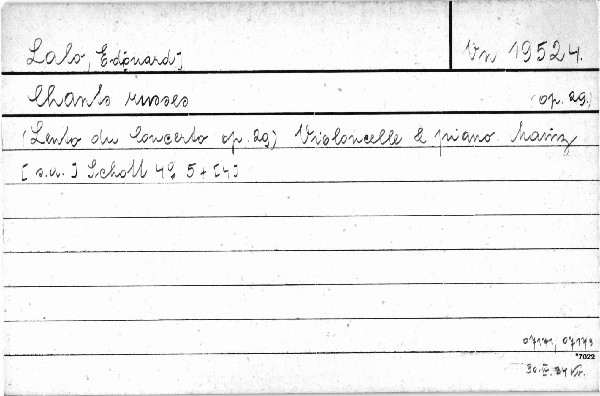 Lalo, Edouard]
Vn 19524.
Chants russes (op. 29.)
(Lento du Concerto op. 29) Violoncelle & piano. Mainz
[s.a.] Schott 4º 5+[4]
07171, 07173
*7022
30. IV. 84